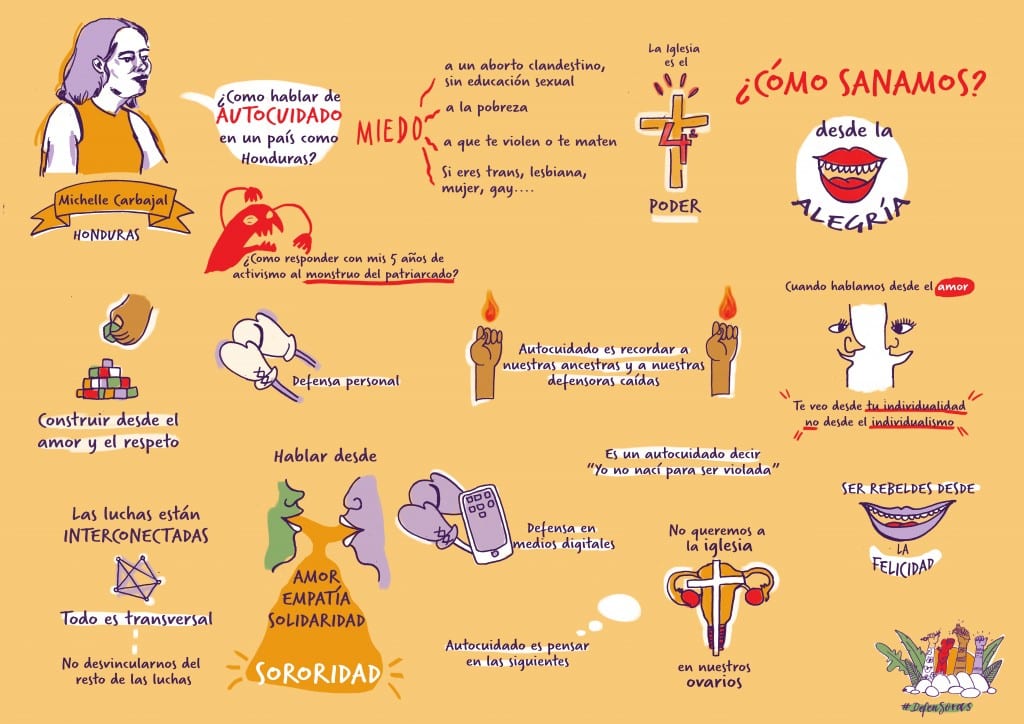 Michelle Carbajal
HONDURAS
¿Como hablar de
AUTOCUIDADO
en un país como
Honduras?
MIEDO
a un aborto clandestino,
sin educación sexual
a la pobreza
a que te violen o te maten
Si eres trans, lesbiana,
mujer, gay....
La Iglesia
es el
4º
PODER
¿CÓMO SANAMOS?
desde la
ALEGRÍA
¿Como responder con mis 5 años de
activismo al monstruo del patriarcado?
Construir desde el
amor y el respeto
Defensa personal
Autocuidado es recordar a
nuestras ancestras y a nuestras
defensoras caídas
Cuando hablamos desde el amor
"Te veo desde tu individualidad
no desde el individualismo"
Las luchas están
INTERCONECTADAS
Todo es transversal
No desvincularnos del
resto de las luchas
Hablar desde
AMOR
EMPATÍA
SOLIDARIDAD
SORORIDAD
Defensa en
medios digitales
Es un autocuidado decir
"Yo no nací para ser violada"
Autocuidado es pensar
en las siguientes
No queremos a
la iglesia
en nuestros
ovarios
SER REBELDES DESDE
LA
FELICIDAD
#DefenSoras